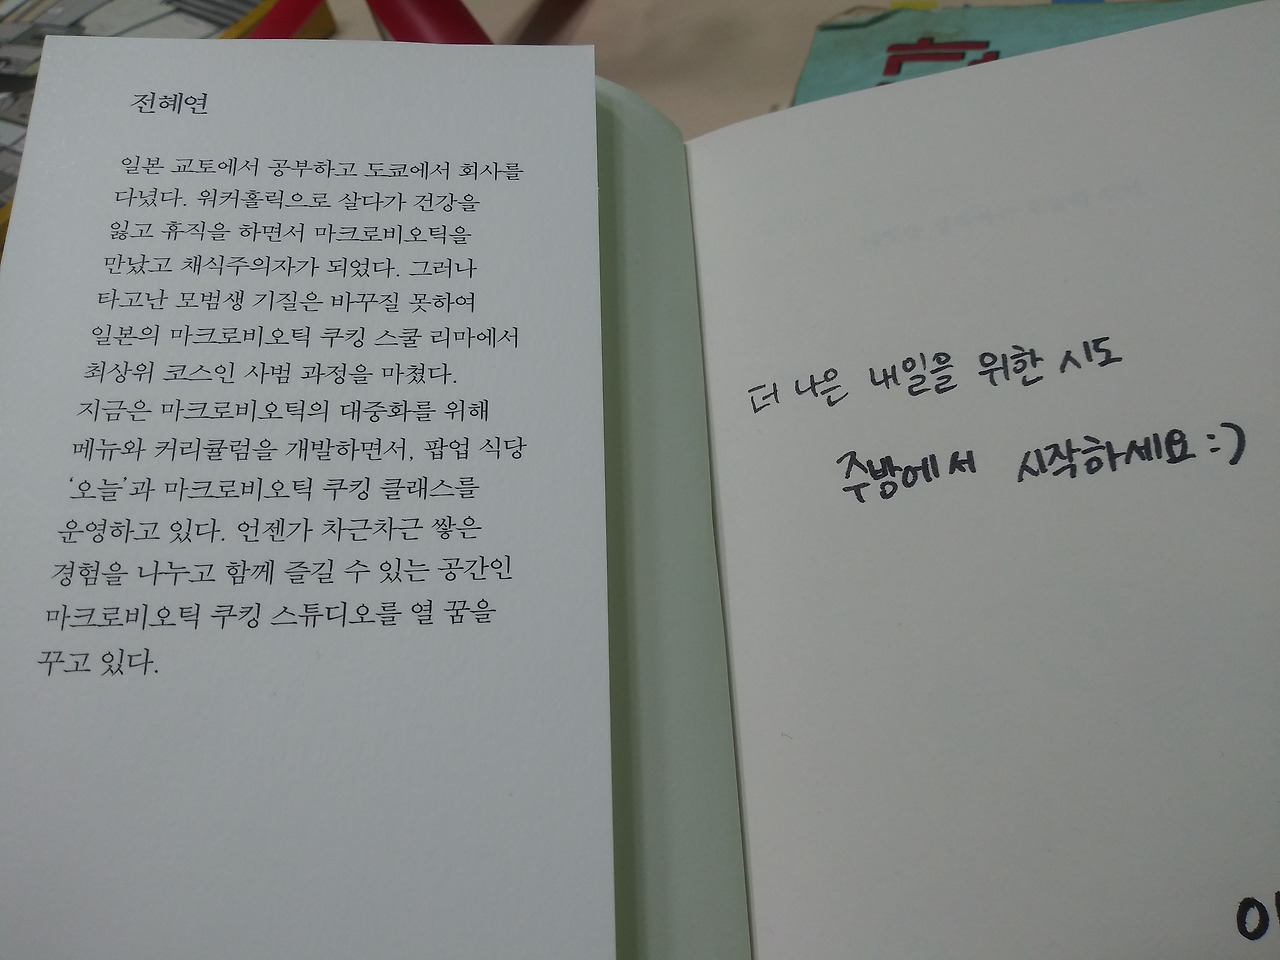 전혜연
일본 교토에서 공부하고 도쿄에서 회사를
다녔다. 워커홀릭으로 살다가 건강을
잃고 휴직을 하면서 마크로비오틱을
만났고 채식주의자가 되었다. 그러나
타고난 모범생 기질은 바꾸질 못하여
일본의 마크로비오틱 쿠킹 스쿨 리마에서
최상위 코스인 사범 과정을 마쳤다.
지금은 마크로비오틱의 대중화를 위해
메뉴와 커리큘럼을 개발하면서, 팝업 식당
‘오늘’과 마크로비오틱 쿠킹 클래스를
운영하고 있다. 언젠가 차근차근 쌓은
경험을 나누고 함께 즐길 수 있는 공간인
마크로비오틱 쿠킹 스튜디오를 열 꿈을
꾸고 있다.
더 나은 내일을 위한 시도
주방에서 시작하세요 :)